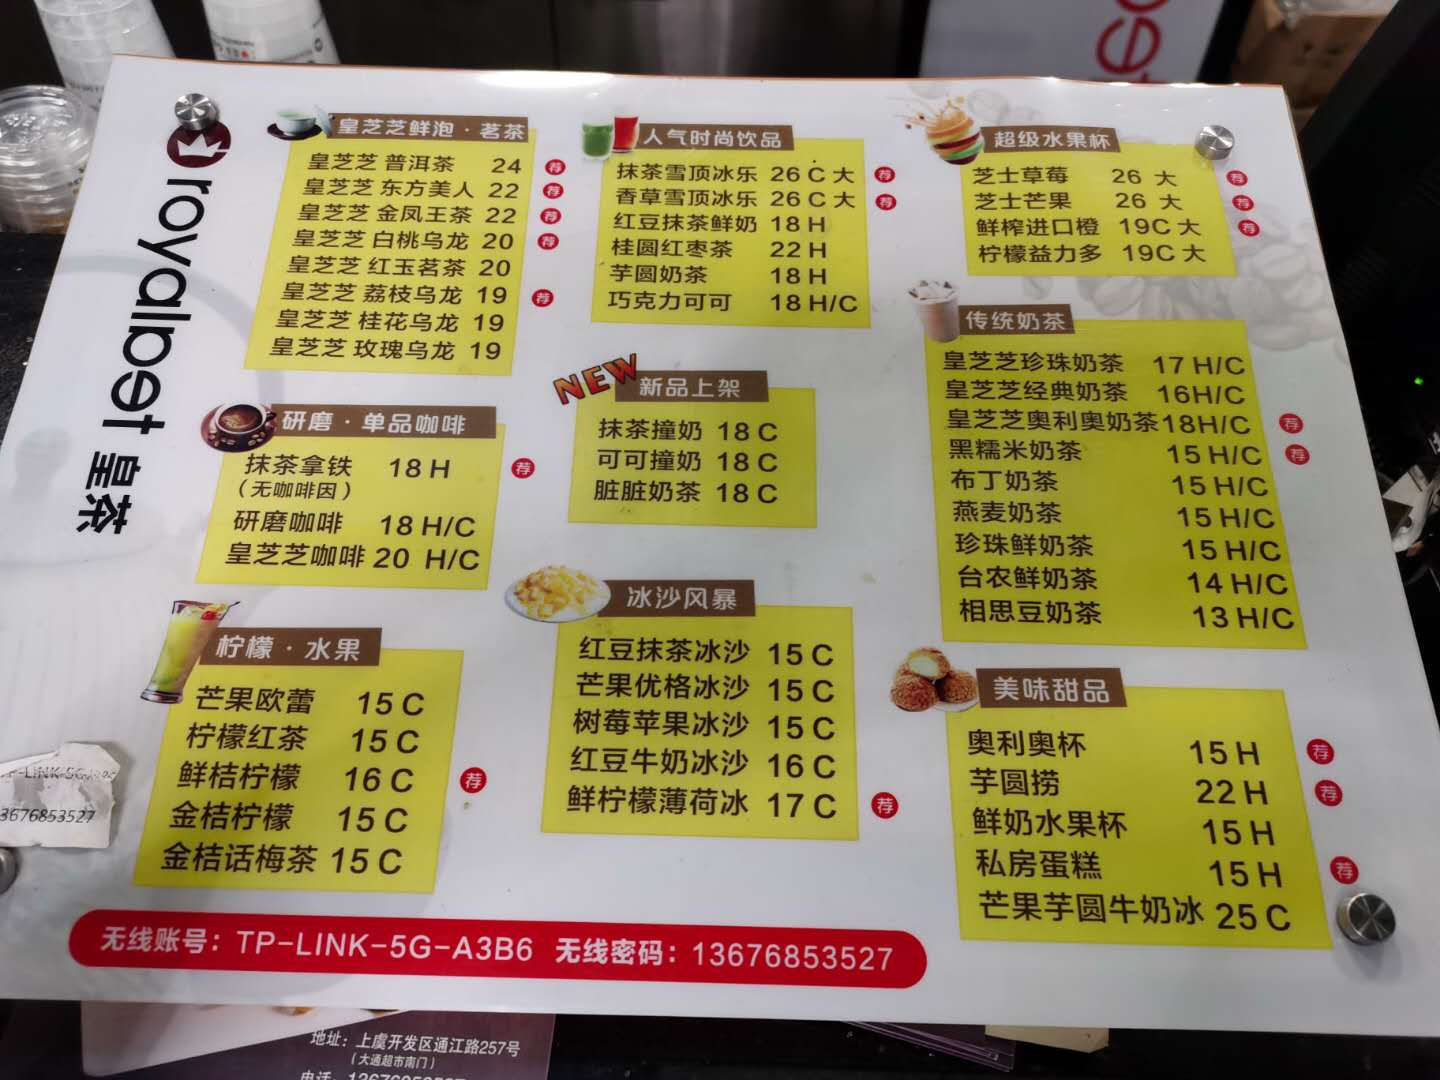 royalpet 皇茶
皇芝芝鲜泡·茗茶
皇芝芝 普洱茶 24 荐
皇芝芝 东方美人 22 荐
皇芝芝 金凤王茶 22 荐
皇芝芝 白桃乌龙 20 荐
皇芝芝 红玉茗茶 20
皇芝芝 荔枝乌龙 19 荐
皇芝芝 桂花乌龙 19
皇芝芝 玫瑰乌龙 19
研磨·单品咖啡
抹茶拿铁 18 H 荐
(无咖啡因)
研磨咖啡 18 H/C
皇芝芝咖啡 20 H/C
柠檬·水果
芒果欧蕾 15 C
柠檬红茶 15 C
鲜桔柠檬 16 C 荐
金桔柠檬 15 C
金桔话梅茶 15 C
人气时尚饮品
抹茶雪顶冰乐 26 C 大 荐
香草雪顶冰乐 26 C 大 荐
红豆抹茶鲜奶 18 H
桂圆红枣茶 22 H
芋圆奶茶 18 H
巧克力可可 18 H/C
NEW 新品上架
抹茶撞奶 18 C
可可撞奶 18 C
脏脏奶茶 18 C
冰沙风暴
红豆抹茶冰沙 15 C
芒果优格冰沙 15 C
树莓苹果冰沙 15 C
红豆牛奶冰沙 16 C
鲜柠檬薄荷冰 17 C 荐
超级水果杯
芝士草莓 26 大 荐
芝士芒果 26 大 荐
鲜榨进口橙 19C 大 荐
柠檬益力多 19C 大
传统奶茶
皇芝芝珍珠奶茶 17 H/C
皇芝芝经典奶茶 16H/C
皇芝芝奥利奥奶茶18H/C 荐
黑糯米奶茶 15 H/C 荐
布丁奶茶 15 H/C
燕麦奶茶 15 H/C
珍珠鲜奶茶 15 H/C
台农鲜奶茶 14 H/C
相思豆奶茶 13 H/C
美味甜品
奥利奥杯 15 H 荐
芋圆捞 22 H 荐
鲜奶水果杯 15 H
私房蛋糕 15 H 荐
芒果芋圆牛奶冰 25 C
无线账号：TP-LINK-5G-A3B6 无线密码：13676853527
TP-LINK-5G
3676853527
地址：上虞开发区通江路257号
(大通超市南门)